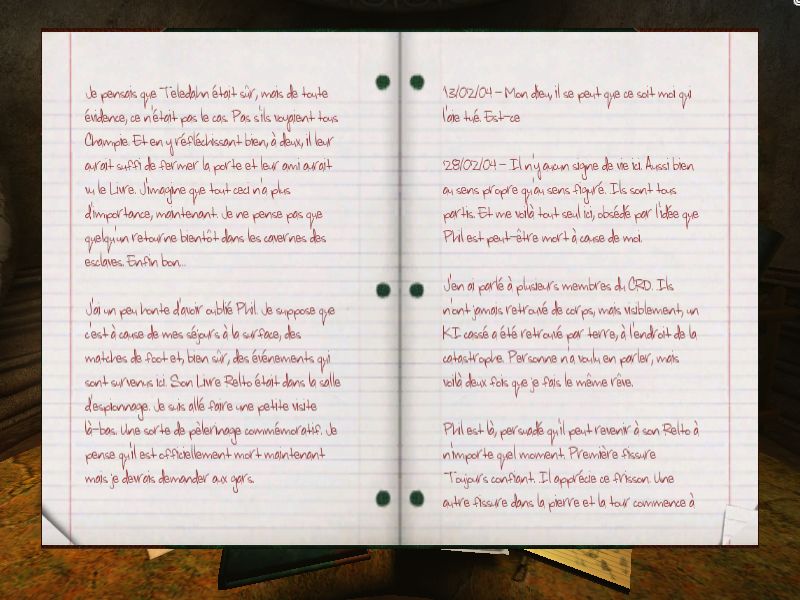 Je pensais que Teledahn était sûr, mais de toute
évidence, ce n'était pas le cas. Pas s'ils voyaient tous
Champie. Et en y réfléchissant bien, à deux, il leur
aurait suffi de fermer la porte et leur ami aurait
vu le Livre. J'imagine que tout ceci n'a plus
d'importance, maintenant. Je ne pense pas que
quelqu'un retourne bientôt dans les cavernes des
esclaves. Enfin bon...
J'ai un peu honte d'avoir oublié Phil. Je suppose que
c'est à cause de mes séjours à la surface, des
matches de foot et, bien sûr, des événements qui
sont survenus ici. Son Livre Relto était dans la salle
d'espionnage. Je suis allé faire une petite visite
là-bas. Une sorte de pèlerinage commémoratif. Je
pense qu'il est officiellement mort maintenant
mais je devrais demander aux gars.
13/02/04 - Mon dieu, il se peut que ce soit moi qui
l'aie tué. Est-ce
28/02/04 - Il n'y aucun signe de vie ici. Aussi bien
au sens propre qu'au sens figuré. Ils sont tous
partis. Et me voilà tout seul ici, obsédé par l'idée que
Phil est peut-être mort à cause de moi.
J'en ai parlé à plusieurs membres du CRD. Ils
n'ont jamais retrouvé de corps, mais visiblement, un
KI cassé a été retrouvé par terre, à l'endroit de la
catastrophe. Personne n'a voulu en parler, mais
voilà deux fois que je fais le même rêve.
Phil est là, persuadé qu'il peut revenir à son Relto à
n'importe quel moment. Première fissure
Toujours confiant. Il apprécie ce frisson. Une
autre fissure dans la pierre et la tour commence à